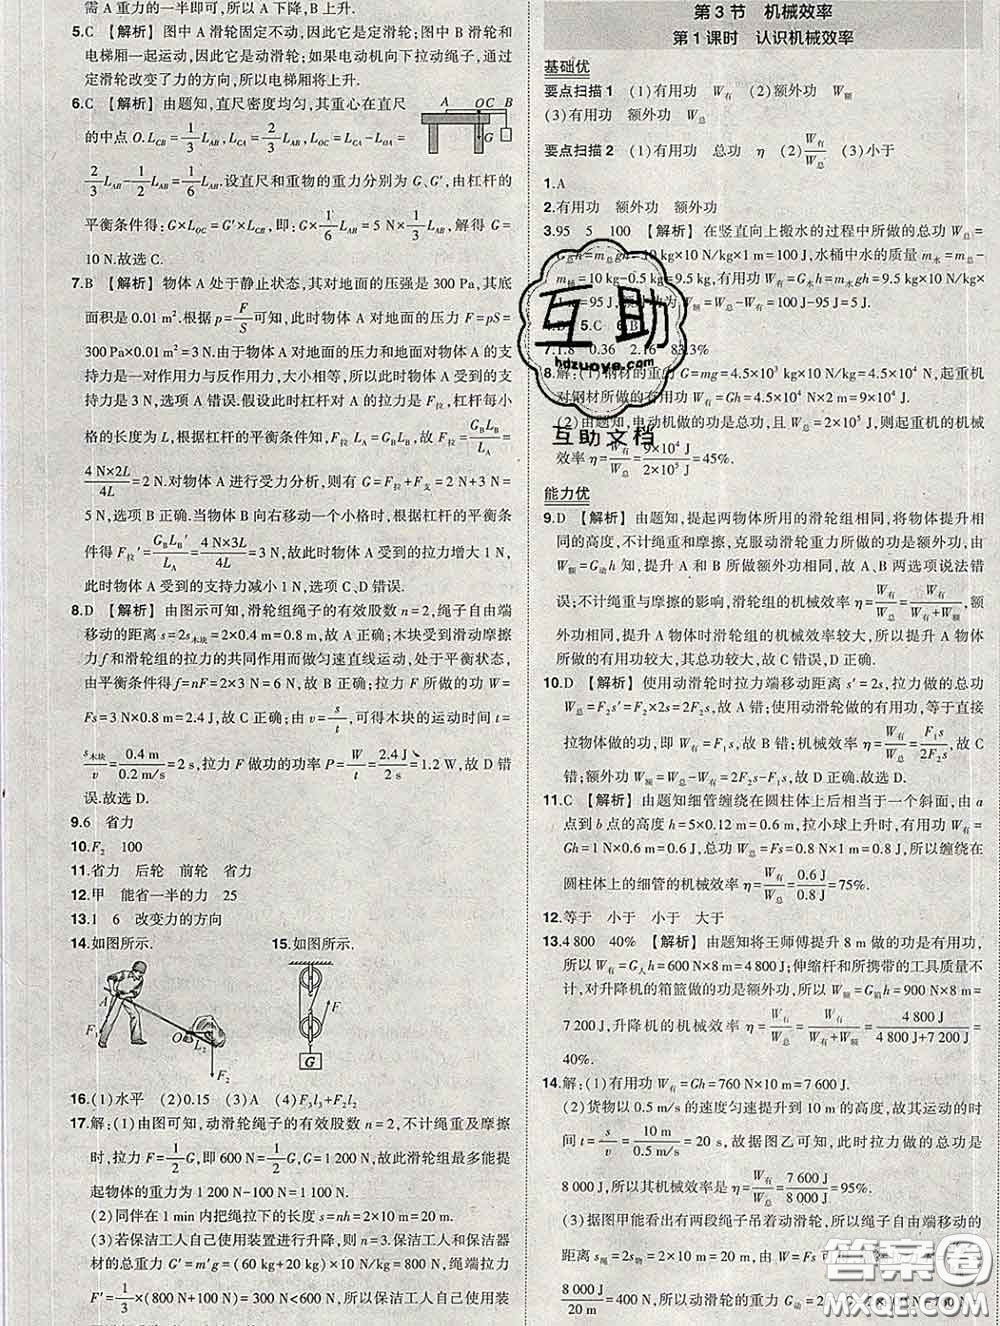 需 A 重力的一半即可，所以 A 下降，B 上升.
5.C 【解析】图中 A 滑轮固定不动，因此它是定滑轮；图中 B 滑轮和
电梯厢一起运动，因此它是动滑轮；如果电动机向下拉动绳子，通过
定滑轮改变了力的方向，所以电梯厢将上升.
6.C 【解析】由题知，直尺密度均匀，其重心在直尺
A OC B
G
的中点 O. L_CB = 1/3 L_AB, L_CA = 2/3 L_AB, L_OC = L_CA − L_OA =
2/3 L_AB − 1/2 L_AB = 1/6 L_AB. 设直尺和重物的重力分别为 G、G′，由杠杆的
平衡条件得：G×L_OC = G′×L_CB，即：G×1/6 L_AB = 5 N×1/3 L_AB，解得：G=
10 N. 故选 C.
7.B 【解析】物体 A 处于静止状态，其对地面的压强是 300 Pa，其底面
积是 0.01 m². 根据 p = F/S 可知，此时物体 A 对地面的压力 F=pS=
300 Pa×0.01 m²=3 N，由于物体 A 对地面的压力和地面对物体 A 的支
持力是一对作用力与反作用力，大小相等，所以此时物体 A 受到的支
持力是 3 N，选项 A 错误. 假设此时杠杆对 A 的拉力是 F拉，杠杆每小
格的长度为 L，根据杠杆的平衡条件得：F拉 L_A = G_B L_B，故 F拉 = G_B L_B/L_A =
4 N×2L/4L = 2 N. 对物体 A 进行受力分析，则有 G=F拉+F支=2 N+3 N=
5 N，选项 B 正确. 当物体 B 向右移动一个小格时，根据杠杆的平衡条
件得 F拉′ = G_B L_B′/L_A = 4 N×3L/4L = 3 N，故此时物体 A 受到的拉力增大 1 N，
此时物体 A 受到的支持力减小 1 N，选项 C、D 错误.
8.D 【解析】由图示可知，滑轮组绳子的有效股数 n=2，绳子自由端
移动的距离 s=2s木块=2×0.4 m=0.8 m，故 A 正确；木块受到滑动摩擦
力 f 和滑轮组的拉力的共同作用而做匀速直线运动，处于平衡状态，
由平衡条件得 f=nF=2×3 N=6 N，故 B 正确；拉力 F 所做的功 W=
Fs=3 N×0.8 m=2.4 J，故 C 正确；由 v = s/t，可得木块的运动时间 t=
s木块/v = 0.4 m/0.2 m/s = 2 s，拉力 F 做功的功率 P = W/t = 2.4 J/2 s = 1.2 W，故 D 错
误. 故选 D.
9.6 省力
10.F₂ 100
11.省力 后轮 前轮 省力
12.甲 能省一半的力 25
13.1 6 改变力的方向
14.如图所示. 15.如图所示.
A F₁ O L₂ F₂
F G
16.(1)水平 (2)0.15 (3)A (4)F₃l₃+F₂l₂
17.解：(1)由图可知，动滑轮绳子的有效股数 n=2，不计绳重及摩擦
时，拉力 F = 1/2 G，即 600 N = 1/2 G，G=1 200 N，故此滑轮组最多能提
起物体的重力为 1 200 N−100 N=1 100 N.
(2)同伴在 1 min 内把绳拉下的长度 s=nh=2×10 m=20 m.
(3)若保洁工人自己使用装置进行升降，则 n=3. 保洁工人和保洁器
材的总重力 G′=m′g=(60 kg+20 kg)×10 N/kg=800 N，绳端拉力
F′ = 1/3×(800 N+100 N)=300 N<600 N，所以保洁工人自己使用该装
第 3 节 机械效率
第 1 课时 认识机械效率
基础优
要点扫描 1 (1)有用功 W有 (2)额外功 W额
(3)有用功 额外功 W总
要点扫描 2 (1)有用功 总功 η (2) W有/W总 (3)小于
1.A
2.有用功 额外功 额外功
3.95 5 100 【解析】在竖直向上搬水的过程中所做的总功 W总=
10 N/kg×1 m=100 J，水桶中水的质量 m水=m总−
10 kg−0.5 kg=9.5 kg，有用功 W有=G水h=m水gh=9.5 kg×10 N/kg×
1 m=95 J，额外功为 W额=W总−W有=100 J−95 J=5 J.
5.C
7.1.8 0.36 2.16 83.3%
8.解：(1)钢材的重力 G=mg=4.5×10³ kg×10 N/kg=4.5×10⁴ N，起重机
对钢材所做的有用功 W有=Gh=4.5×10⁴ N×2 m=9×10⁴ J.
(2)由题知，电动机做的功是总功，W总=2×10⁵ J，起重机的机械
效率 η = W有/W总 = 9×10⁴ J/2×10⁵ J = 45%.
能力优
9.D 【解析】由题知，提起两物体所用的滑轮组相同，将物体提升相
同的高度，不计绳重和摩擦，克服动滑轮重力所做的功是额外功，由
W额=G动h 知，提升 A 和 B 所做的额外功相同，故 A、B 两选项说法错
误；不计绳重与摩擦的影响，滑轮组的机械效率 η = W有/W总 = W有/W有+W额，额
外功相同，提升 A 物体时滑轮组的机械效率较大，所以提升 A 物体
所做的有用功较大，其总功较大，故 C 错误，D 正确.
10.D 【解析】使用动滑轮时拉力端移动距离 s′=2s，拉力做的总功
W总=F₂s′=F₂×2s=2F₂s，故 A 错；使用动滑轮做的有用功，等于直接
拉物体做的功，即 W有=F₁s，故 B 错；机械效率 η = W有/W总 = F₁s/2F₂s，故 C
错；额外功 W额=W总−W有=2F₂s−F₁s，故 D 正确.
11.C 【解析】由题知细管缠绕在圆柱体上后相当于一个斜面，由 a
点到 b 点的高度 h=5×0.12 m=0.6 m，拉小球上升时，有用功 W有=
Gh=1 N×0.6 m=0.6 J，总功 W总=Fs=0.8 N×1 m=0.8 J，所以缠绕在
圆柱体上的细管的机械效率 η = W有/W总 = 0.6 J/0.8 J = 75%.
12.等于 小于 小于 大于
13.4 800 40% 【解析】由题知将王师傅提升 8 m 做的功是有用功，
所以 W有=G人h=600 N×8 m=4 800 J；伸缩杆和所携带的工具质量不
计，对升降机的箱篮做的功为额外功，所以 W额=G箱h=900 N×8 m=
7 200 J，升降机的机械效率 η = W有/W总 = W有/W有+W额 = 4 800 J/4 800 J+7 200 J =
40%.
14.解：(1)有用功 W有=Gh=760 N×10 m=7 600 J.
(2)货物以 0.5 m/s 的速度匀速提升到 10 m 的高度，故其运动的时
间 t = s/v = 10 m/0.5 m/s = 20 s，故据图乙可知，此时拉力做的总功是
8 000 J，所以其机械效率是 η = W有/W总 = 7 600 J/8 000 J = 95%.
(3)据图甲能看出有两段绳子吊着动滑轮，所以绳子自由端移动的
距离 s绳=2s物=2×10 m=20 m，由 W=Fs 可知
8 000 J/20 m = 400 N，所以动滑轮的重力 G动=2
互助
hdzuoye.com
互助文档
答案圈
MXQE.COM